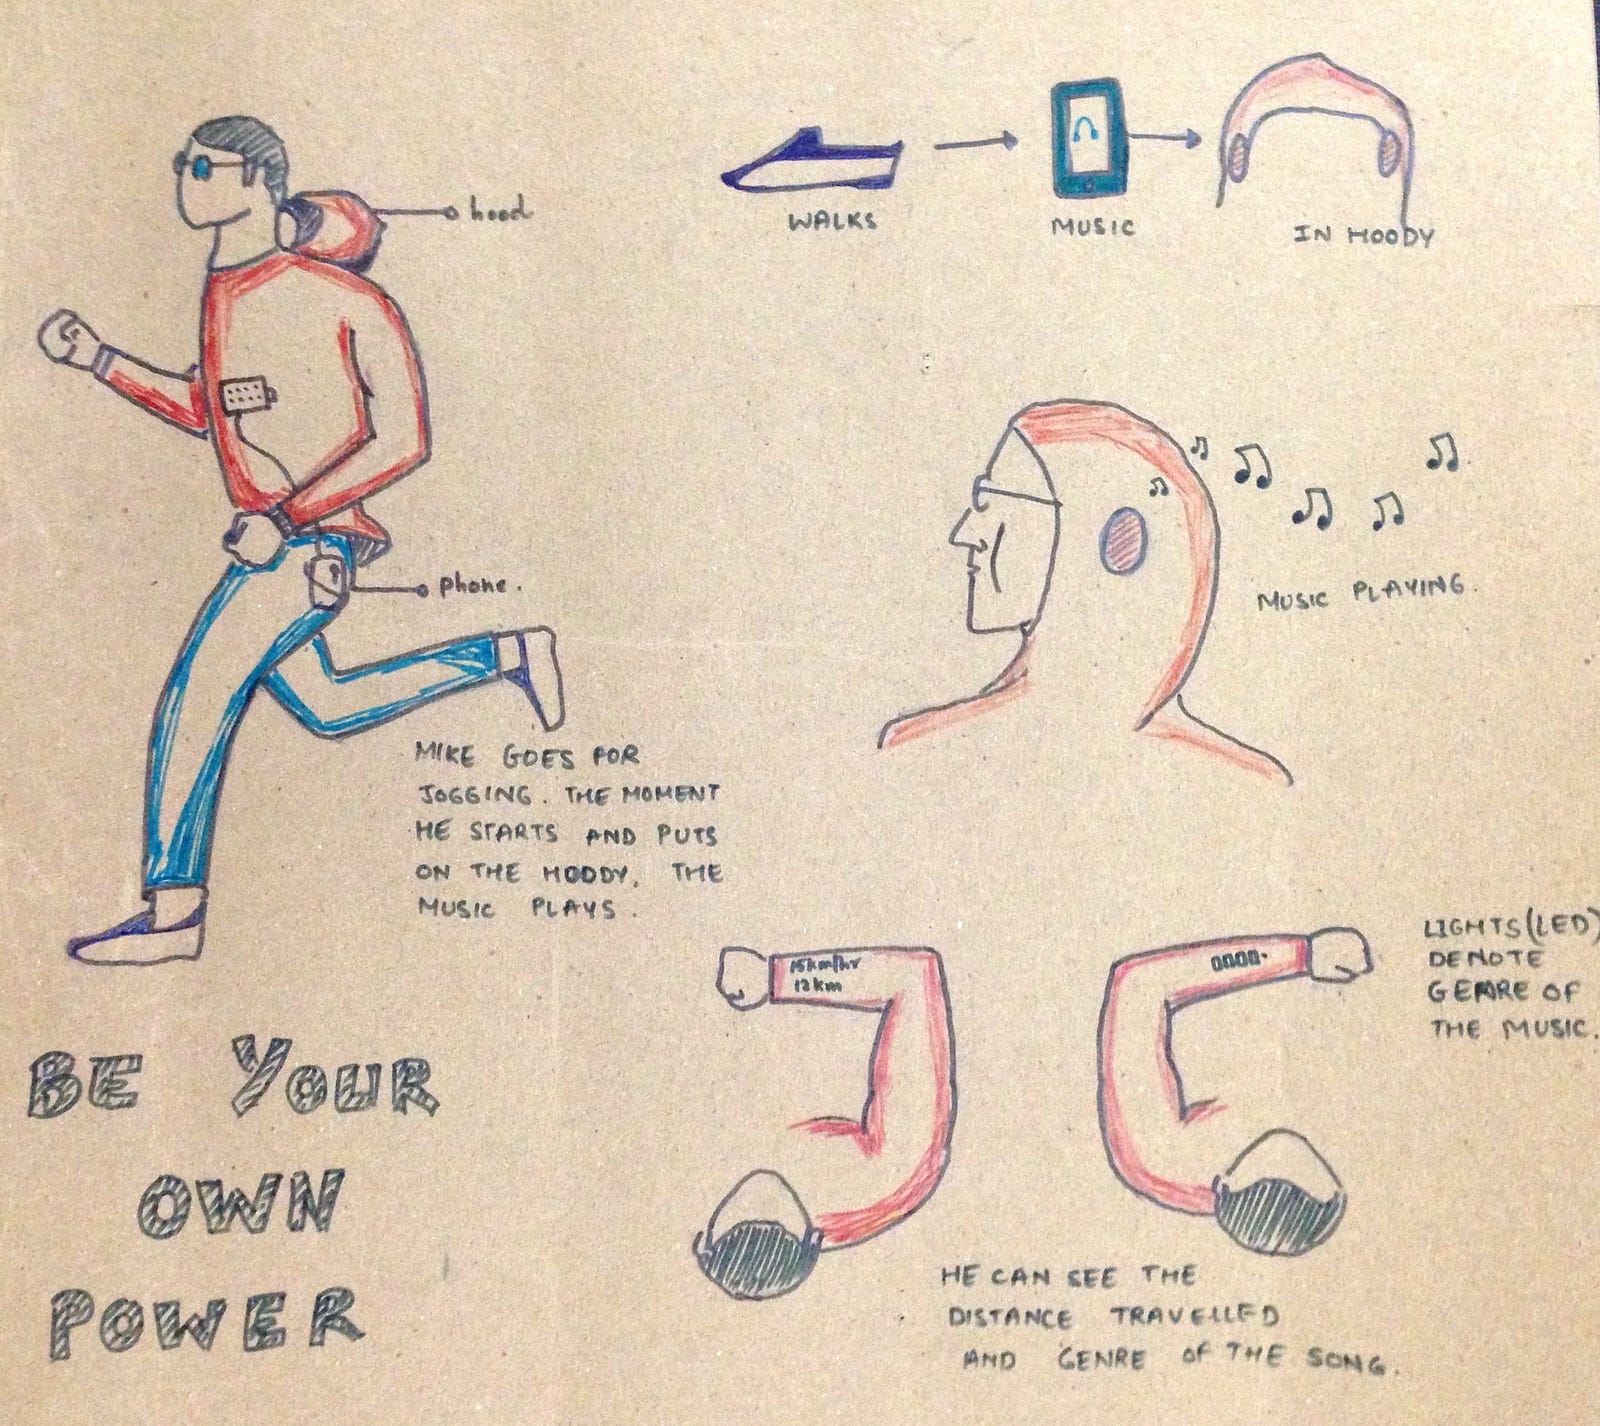 hood
WALKS
MUSIC
IN HOODY
MUSIC PLAYING.
phone.
MIKE GOES FOR
JOGGING. THE MOMENT
HE STARTS AND PUTS
ON THE HOODY, THE
MUSIC PLAYS.
15km/hr
12km
LIGHTS(LED)
DENOTE
GENRE OF
THE MUSIC.
BE YOUR
OWN
POWER
HE CAN SEE THE
DISTANCE TRAVELLED
AND GENRE OF THE SONG.